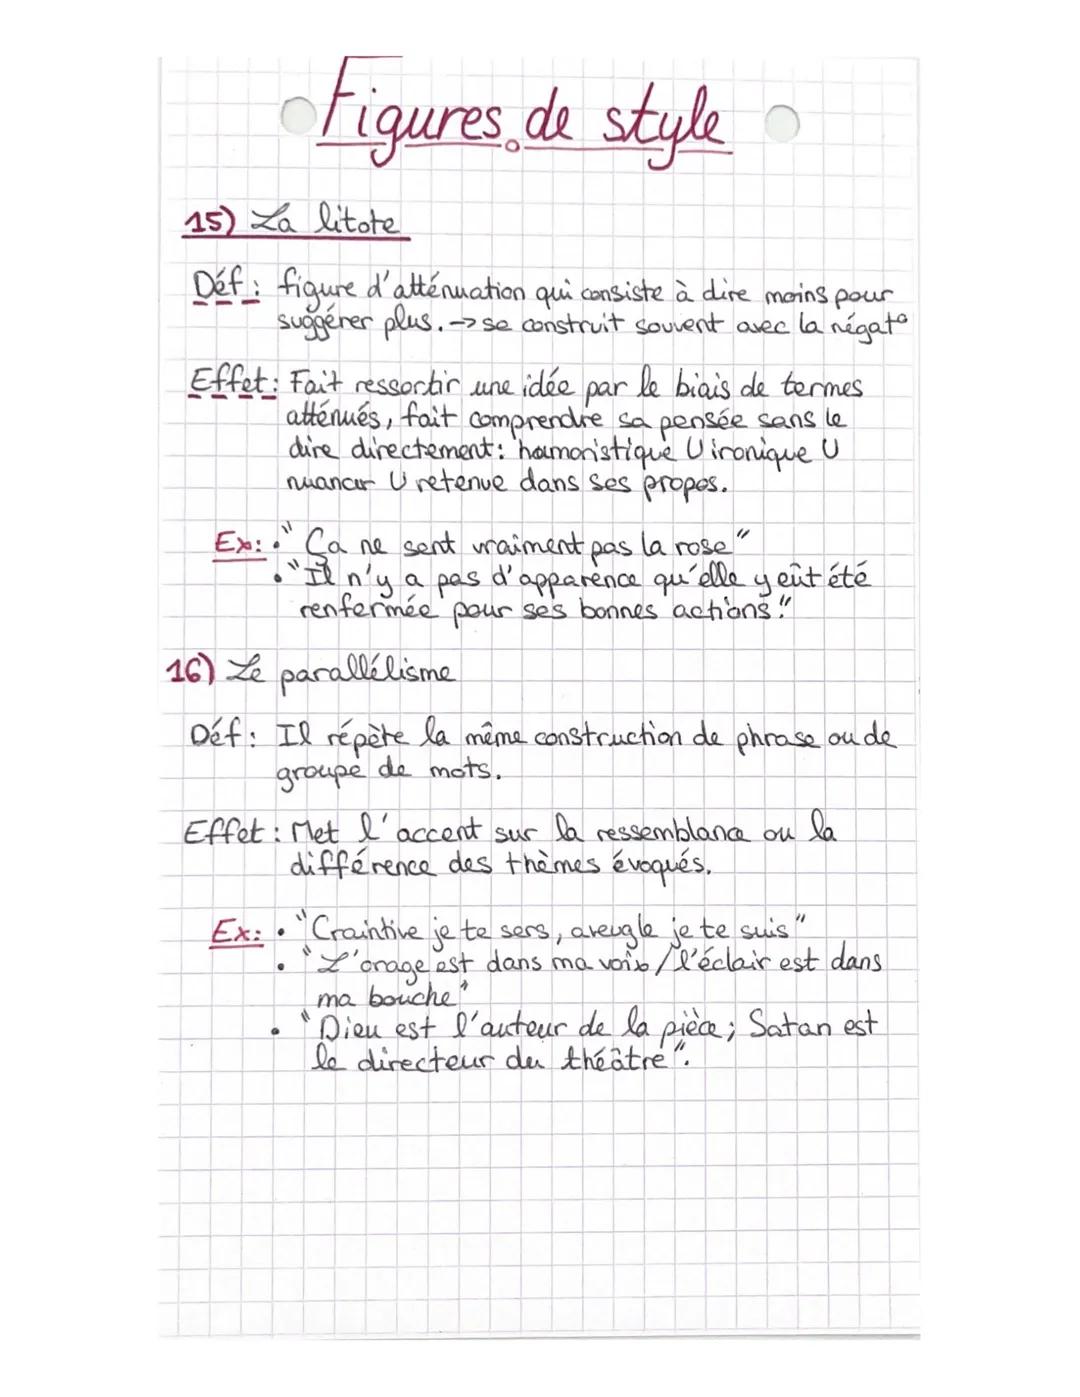 Figures de style
15) La litote
Déf: figure d'atténuation qui consiste à dire moins pour
suggérer plus. -> se construit souvent avec la négat°
Effet: Fait ressortir une idée par le biais de termes
atténués, fait comprendre sa pensée sans le
dire directement: humoristique U ironique U
nuancer U retenue dans ses propos.
Ex: • "Ça ne sent vraiment pas la rose"
• "Il n'y a pas d'apparence qu'elle y eût été
renfermée pour ses bonnes actions."
16) Le parallélisme
Déf: Il répète la même construction de phrase ou de
groupe de mots.
Effet: Met l'accent sur la ressemblance ou la
différence des thèmes évoqués.
Ex: • "Craintive je te sers, aveugle je te suis"
• "L'orage est dans ma voix / l'éclair est dans
ma bouche"
• "Dieu est l'auteur de la pièce; Satan est
le directeur du théâtre".